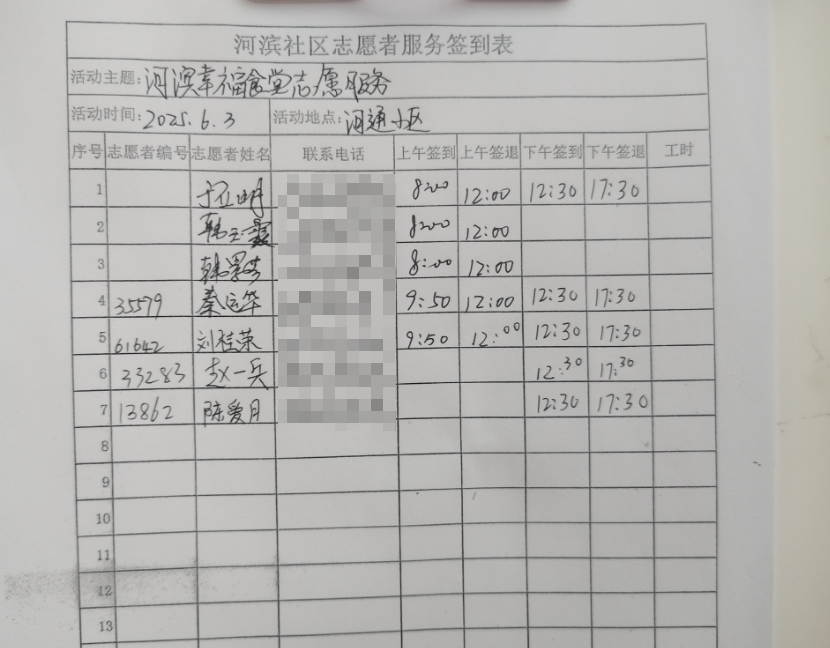 河滨社区志愿者服务签到表
活动主题: 河滨幸福食堂志愿服务
活动时间: 2025.6.3 活动地点: 河通小区
序号 志愿者编号 志愿者姓名 联系电话 上午签到 上午签退 下午签到 下午签退 工时
1 8:00 12:00 12:30 17:30
2 8:00 12:00
3 8:00 12:00
4 35579 秦运华 9:50 12:00 12:30 17:30
5 61642 刘桂荣 9:50 12:00 12:30 17:30
6 33283 赵一兵 12:30 17:30
7 13862 陈爱月 12:30 17:30
8
9
10
11
12
13